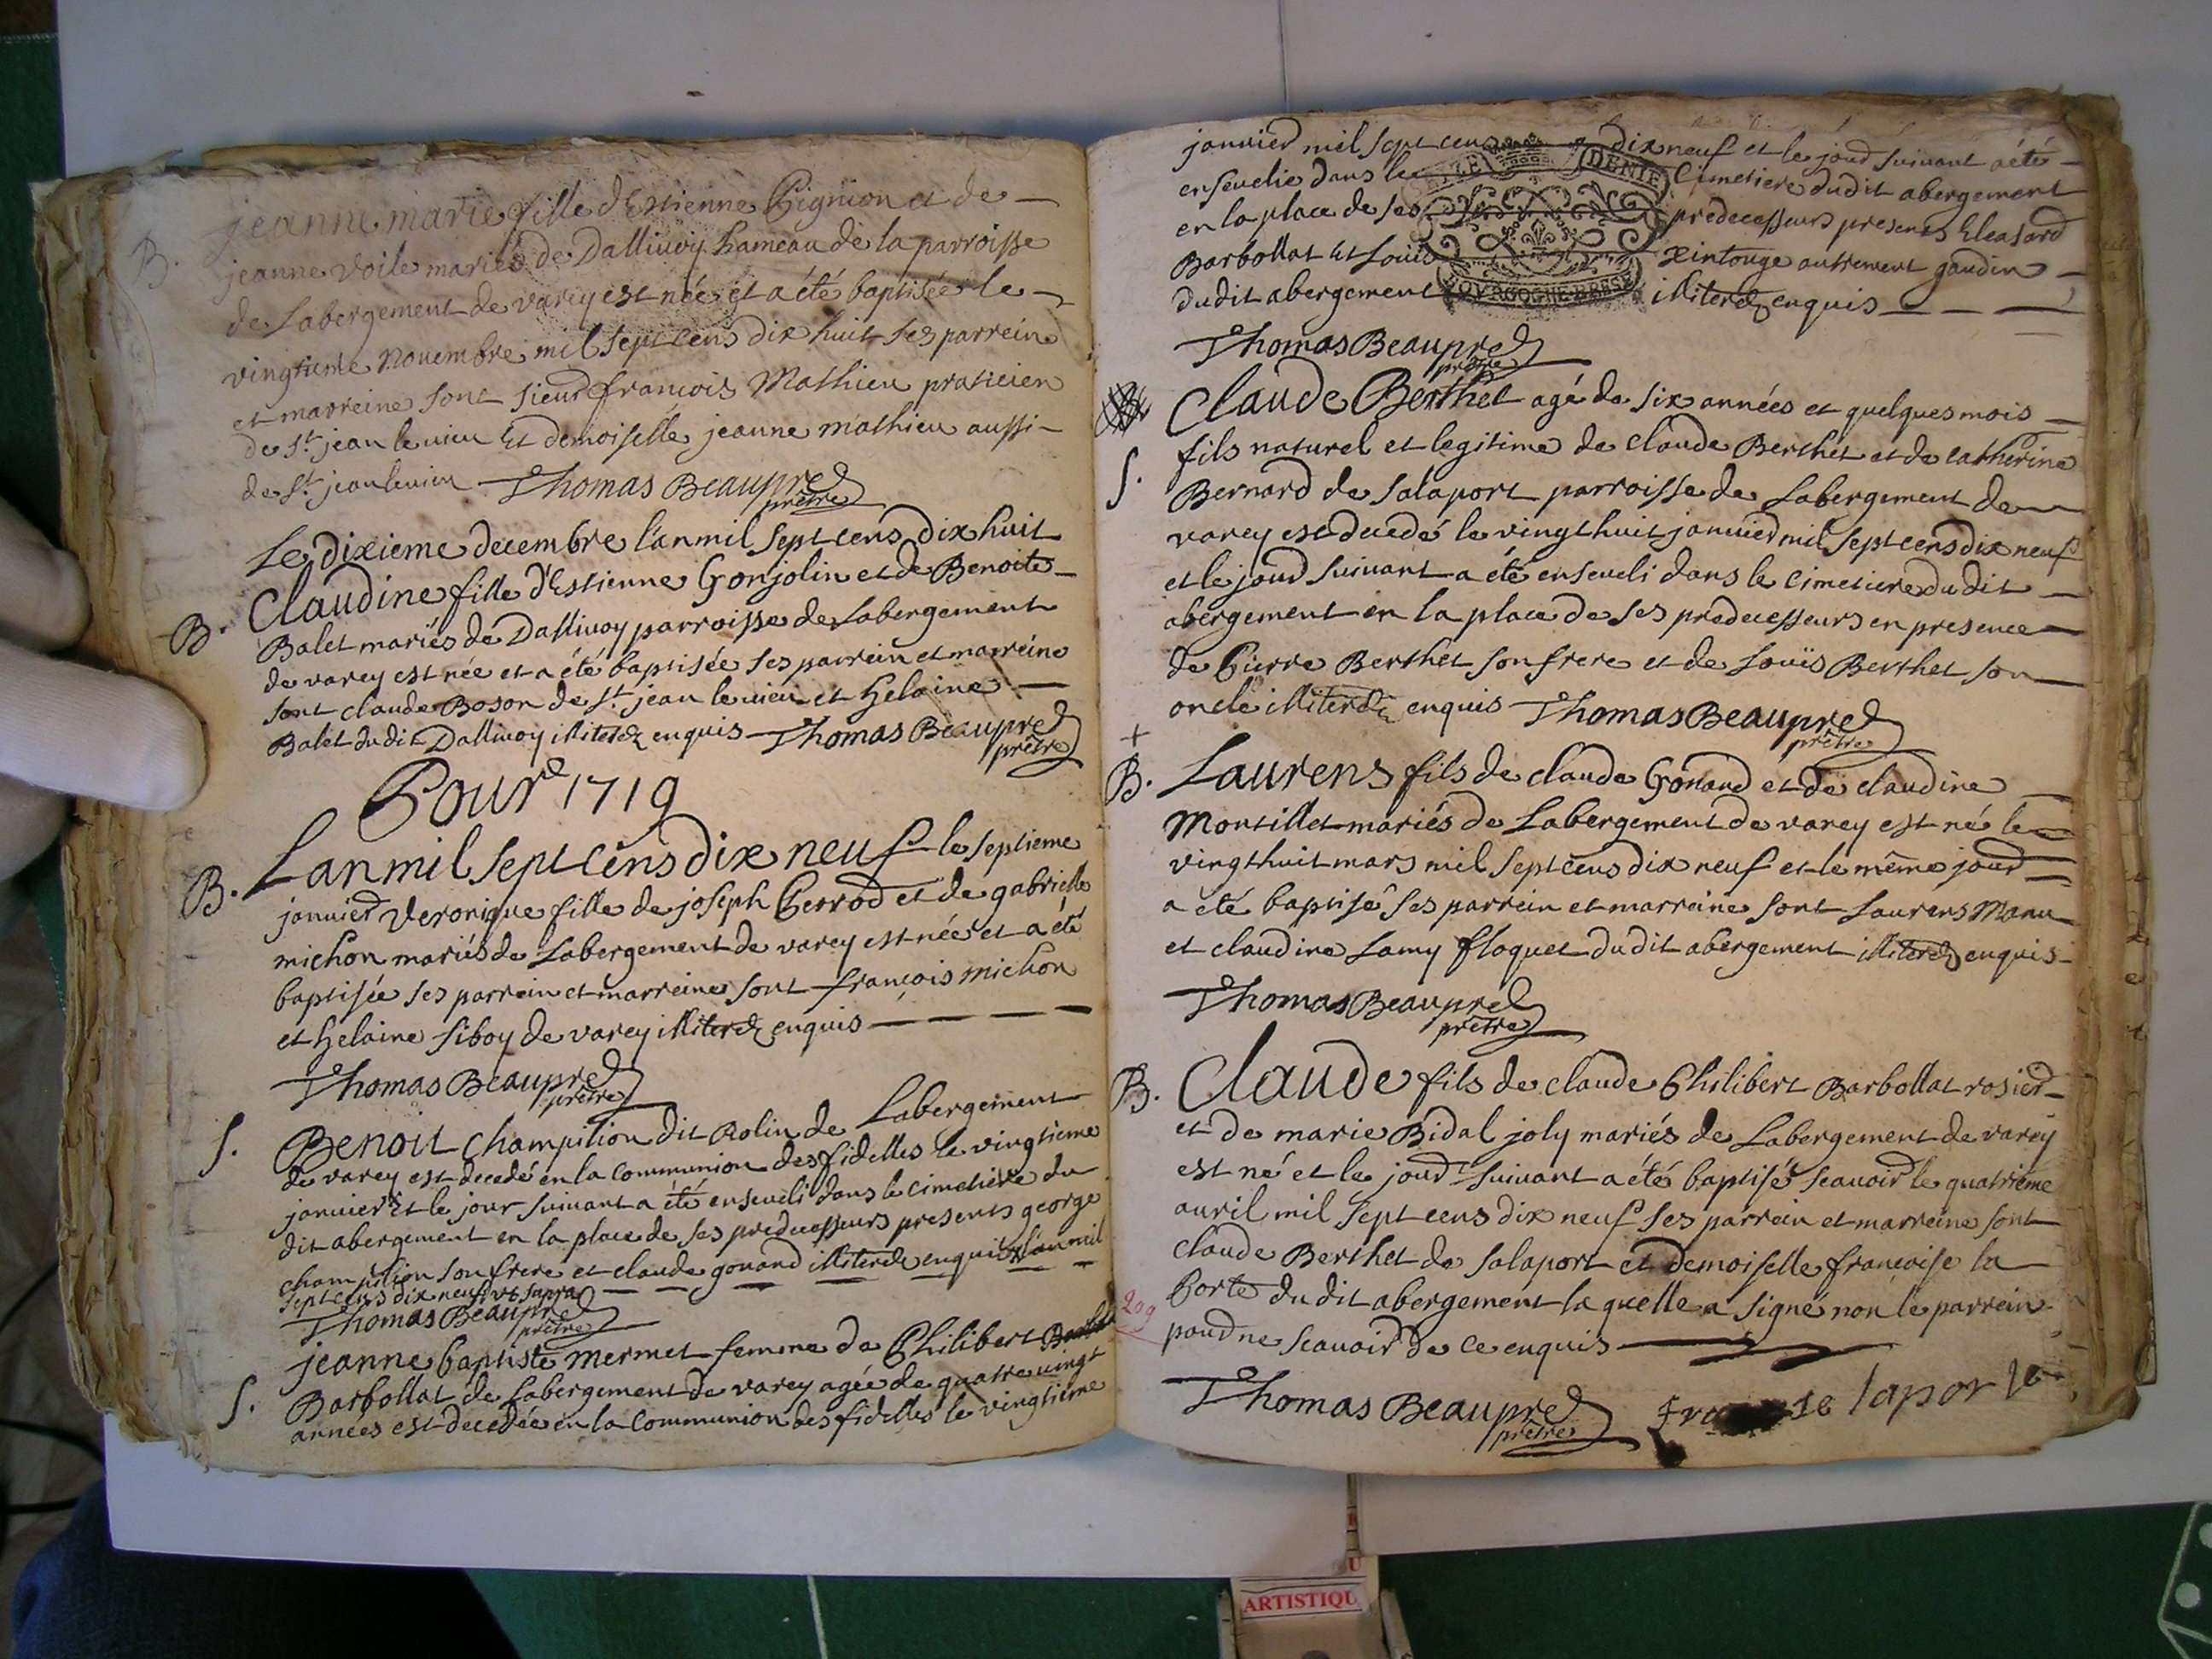 B.
jeanne marie fille d'Estienne Pignion et de
jeanne Voile mariés de Dallivoy hameau de la parroisse
de Labergement de varey est née et a été baptisée le
vingtieme Novembre mil sept cens dix huit ses parrein
et marreine sont sieur françois Mathieu praticien
de St jean le vieu Et demoiselle jeanne mathieu aussi
de St jean le vieu Thomas Beaupred
prêtre
Le dixieme decembre l'an mil sept cens dix huit
B.
Claudine fille d'Estienne Gonjolin et de Benoite
Balet mariés de Dallivoy parroisse de Labergement
de varey est née et a été baptisée ses parrein et marreine
sont claude Boson de St jean le vieu et Helaine
Balet du dit Dallivoy illiterez enquis Thomas Beaupred
prêtre
Pour 1719
B.
Lan mil sept cens dix neuf le septieme
janvier Veronique fille de joseph Perrod et de gabrielle
michon mariés de Labergement de varey est née et a été
baptisée ses parrein et marreine sont françois michon
et Helaine siboy de varey illiterez enquis
Thomas Beaupred
prêtre
S.
Benoit Champition dit Rolin de Labergement
de varey est decedé en la Communion des fidelles le vingtieme
janvier Et le jour suivant a été enseveli dans le cimetiere du
dit abergement en la place de ses predecesseurs presents george
champition son frere et claude gonard illiterez enquis l'an mil
sept cens dix neuf vt supra
Thomas Beaupred
prêtre
S.
jeanne baptiste mermet femme de Philibert
Barbollat de Labergement de varey agée de quatre vingt
années est decedée en la Communion des fidelles le vingtieme
janvier mil sept cens dix neuf et le jour suivant a été
ensevelie dans le Cimetiere du dit abergement
en la place de ses predecesseurs presents Eleasard
Barbollat Et Louis Xintonge autrement gaudin
du dit abergement illiterez enquis
BOVRGOGNE BRESSE
Thomas Beaupred
prêtre
S.
Claude Berthet agé de six années et quelques mois
fils naturel et legitime de claude Berthet et de catherine
Bernard de salaport parroisse de Labergement de
varey est decedé le vingt huit janvier mil sept cens dix neuf
et le jour suivant a été enseveli dans le cimetiere du dit
abergement en la place de ses predecesseurs en presence
de Pierre Berthet son frere et de Louïs Berthet son
oncle illiterez enquis Thomas Beaupred
prêtre
+
B.
Laurens fils de claude Gonard et de claudine
Montillet mariés de Labergement de varey est né le
vingt huit mars mil sept cens dix neuf et le même jour
a été baptisé ses parrein et marreine sont Laurens Manu
et claudine Lamy floquet du dit abergement illiterez enquis
Thomas Beaupred
prêtre
B.
Claude fils de claude Philibert Barbollat rosier
et de marie Bidal joly mariés de Labergement de varey
est né et le jour suivant a été baptisé scavoir le quatrieme
avril mil sept cens dix neuf ses parrein et marreine sont
Claude Berthet de salaport et demoiselle françoise la
Porte du dit abergement la quelle a signé non le parrein
pour ne scavoir de ce enquis
209
Thomas Beaupred
prêtre
laporte
ARTISTIQU